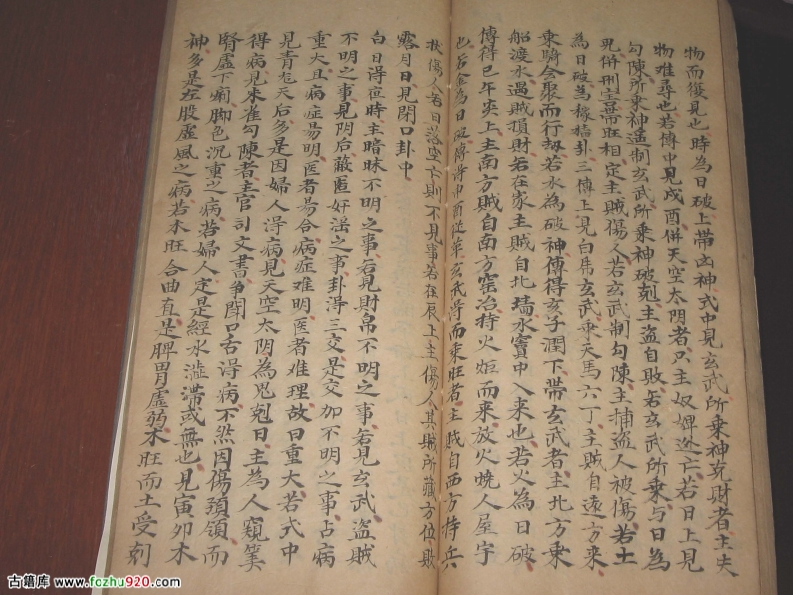 物而復見也時為日破上帶凶神式中見玄武所乘神克財者主失
物难尋也若傳中見戌酉併天空太阴者只主奴婢逃亡若日上見
勾陳所乘神遥制玄武所乘神破尅主盗自敗若玄武所乘与日為
鬼併刑害而旺相定主賊傷人若玄武制勾陳主捕盗人被傷若土
為日破為稼穑卦三傳上見白虎玄武乘天馬六丁主賊自遠方来
乘騎会聚而行刼若水為破神傳得亥子潤下帶玄武者主北方東
船渡水過賊損財若在家主賊自北墙水竇中入来也若火為日破
傳得巳午炎上主南方賊自南方窑冶持火炬而来放火燒人屋宇
也若金為日破傳得申酉從革玄武得而乘旺者主賊自西方持兵
杖傷人若日落空亡則不見事若在辰上主傷人其賊所藏方位敗
露月日見閉口卦中
白日得夜時主暗昧不明之事若見財帛不明之事若見玄武盗賊
不明之事見阴后蔽匿奸淫之事卦得三交是交加不明之事占病
重大且病症易明医者易合病症难明医者难理故曰重大若式中
見青龙天后多是因婦人得病見天空太阴為鬼尅日主為人窺筭
得病見朱雀勾陳者主官司文書争閗口舌得病不然因傷頭領而
腎虛下痢脚色沉重之病若婦人定是經水澁滯或無也見寅夘木
神多是左股虛風之病若木旺合曲直是脾胃虛弱木旺而土受剋
古籍库 www.fozhu920.com